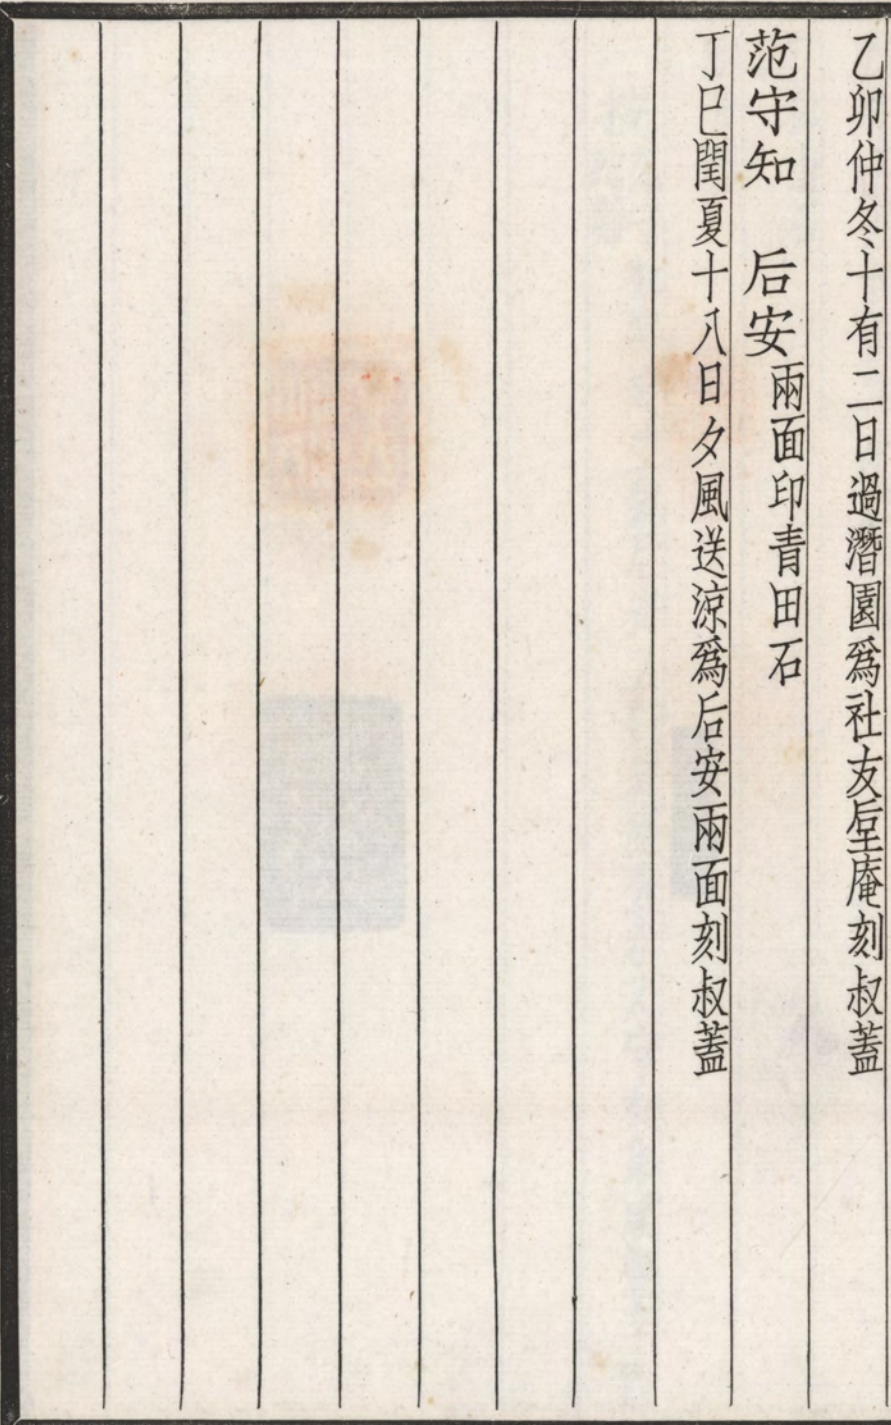 乙卯仲冬十有二日過潛園爲社友垕庵刻叔蓋
范守知　后安兩面印青田石
丁巳閏夏十八日夕風送涼爲后安兩面刻叔蓋